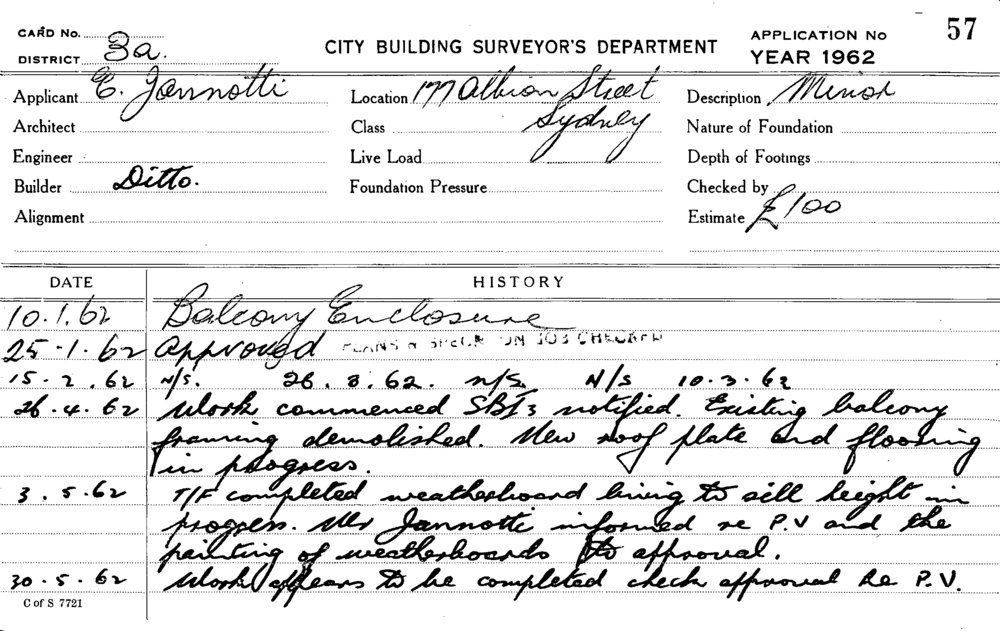 CARD No.
DISTRICT 3a.
CITY BUILDING SURVEYOR'S DEPARTMENT
APPLICATION No 57
YEAR 1962
Applicant E. Jannotti
Location 177 Albion Street
Sydney
Description Minor
Architect
Class
Nature of Foundation
Engineer
Live Load
Depth of Footings
Builder Ditto.
Foundation Pressure
Checked by
Alignment
Estimate £100
DATE HISTORY
10.1.62 Balcony Enclosure
25.1.62 Approved PLANS & SPECN ON JOB CHECKED
15.2.62 N/S. 26.3.62. N/S N/S 10.3.62
26.4.62 Work commenced SBI 3 notified. Existing balcony
framing demolished. New roof plate and flooring
in progress.
3.5.62 T/F completed weatherboard lining to sill height in
progress. Mr Jannotti informed re P.V and the
painting of weatherboards to approval.
30.5.62 Work appears to be completed check approval Re P.V.
C of S 7721